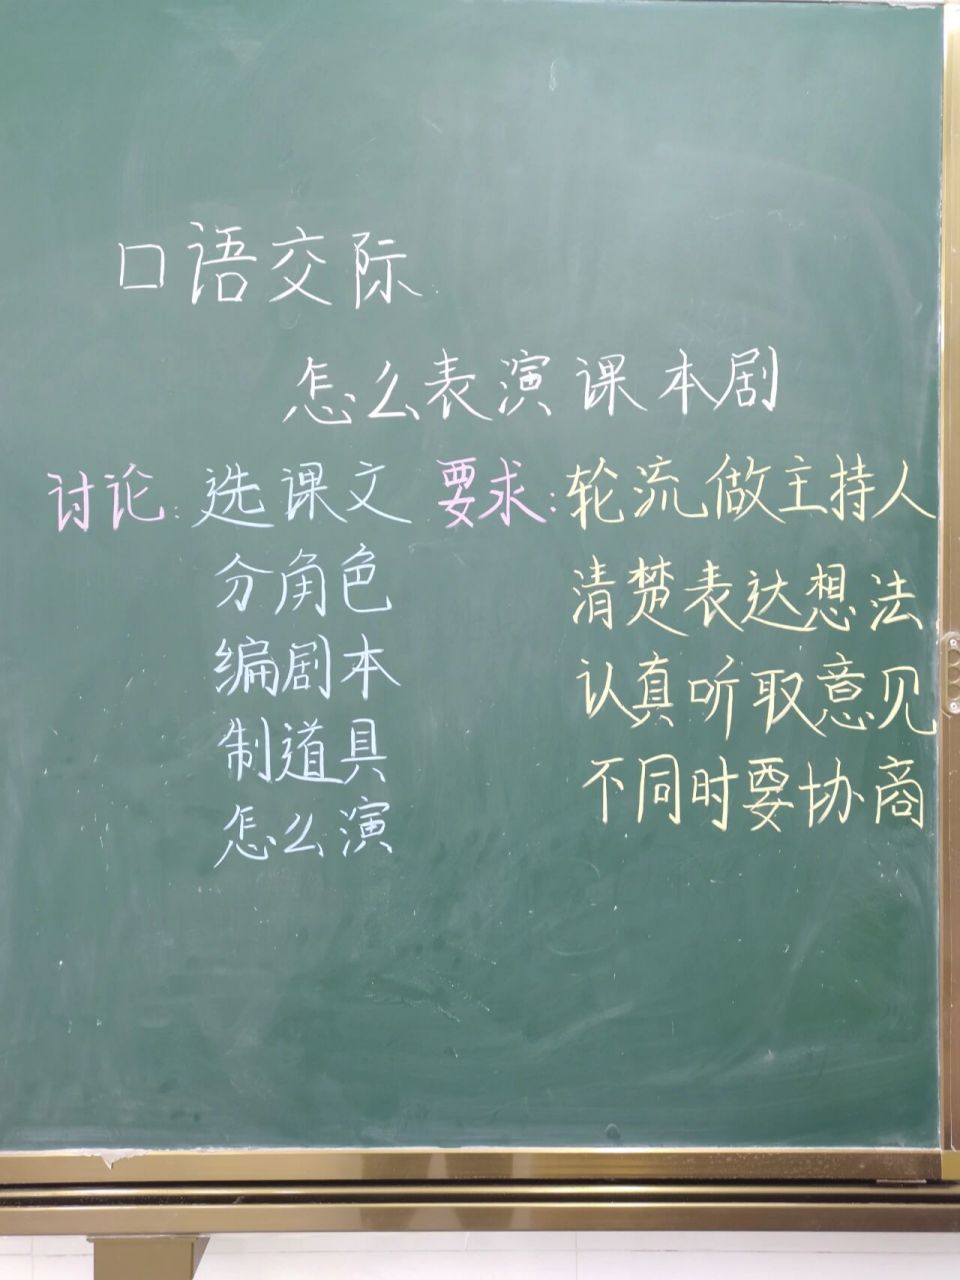 口语交际
怎么表演课本剧
讨论:选课文
分角色
编剧本
制道具
怎么演
要求:轮流做主持人
清楚表达想法
认真听取意见
不同时要协商